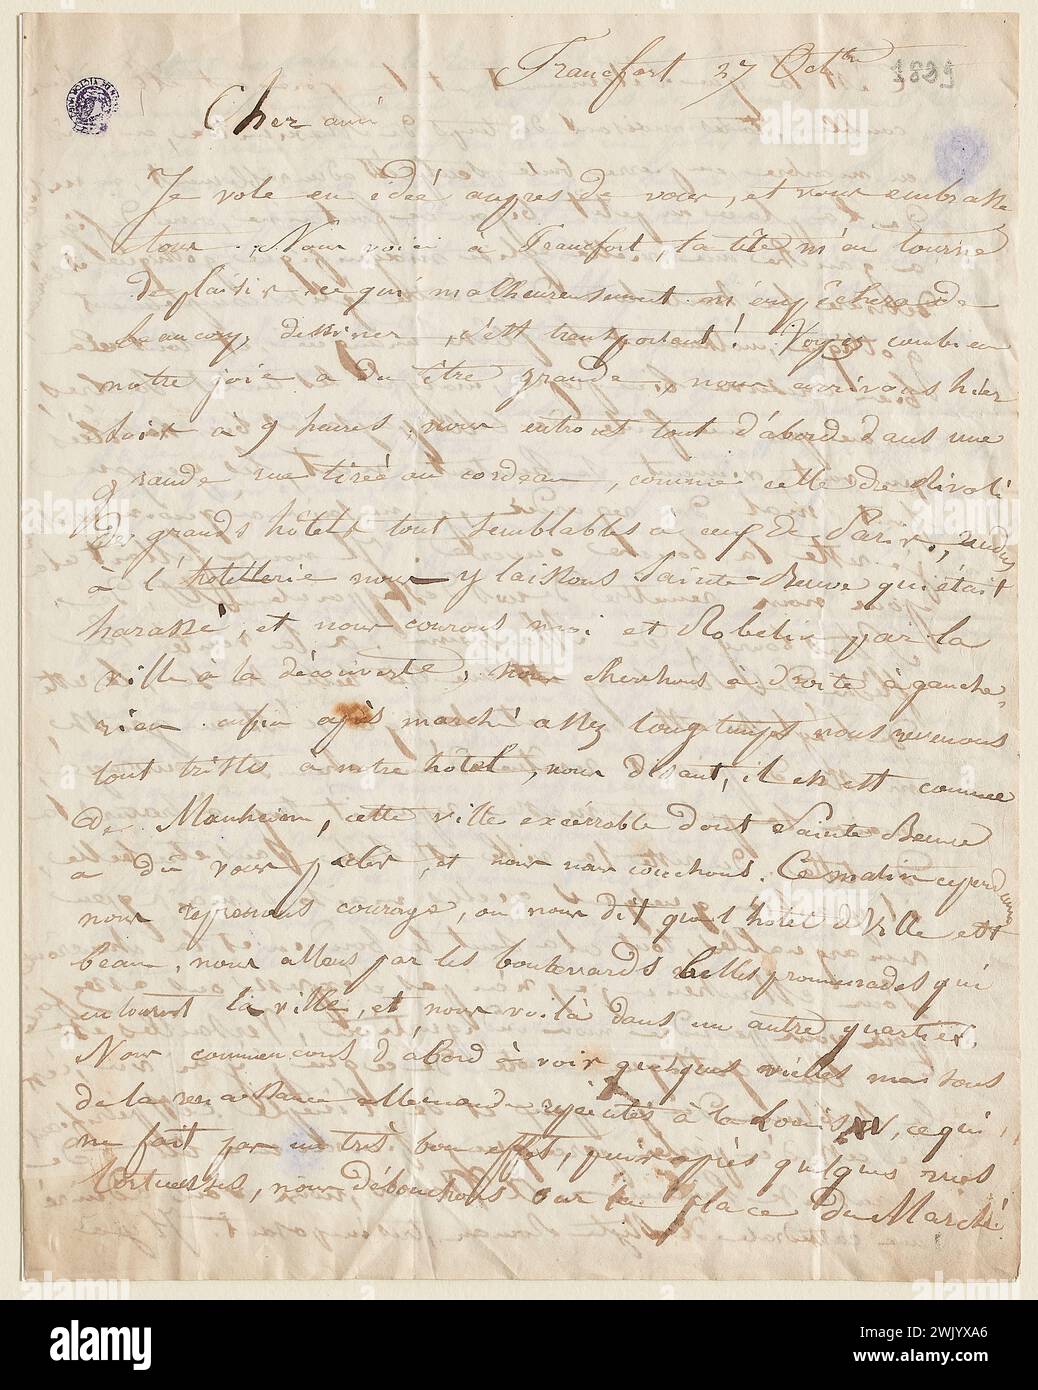 Francfort 27 Octbre 1829
Cher ami
Je vole en idée aupres de vous, et vous embrasse
tous. Nous voici à Francfort, la tête m'en tourne
de plaisir ce qui malheureusement m'empêchera de
beaucoup dessiner, c'est transportant! Voyez combien
notre joie a du être grande, nous arrivons hier
soir à 9 heures, nous entrons tout d'abord dans une
grande rue tirée au cordeau, comme celle de Rivoli
des grands hôtels tout semblables à ceux de Paris,
à l'hôtellerie nous y laissons Sainte-Beuve qui était
harassé, et nous courons moi et Robelin par la
ville à la découverte, nous cherchons à droite à gauche,
rien. enfin après marché assez longtemps nous revenons
tout tristes à notre hôtel, nous disant, il en est comme
de Manheim, cette ville exécrable dont Sainte Beuve
a du vous parler, et nous nous couchons. Ce matin cependant
nous reprenons courage, on nous dit que l'hôtel de Ville est
beau, nous allons par les boulevards belles promenades qui
entourent la ville, et nous voilà dans un autre quartier.
Nous commencons d'abord à voir quelques vieilles maisons
de la renaissance allemande rejuites à la Louis XV, ce qui
ne fait pas un très bon effet, puis après quelques rues
tortueuses, nous débouchons sur la place du Marché
alamy
Image ID: 2WJYXA6
www.alamy.com